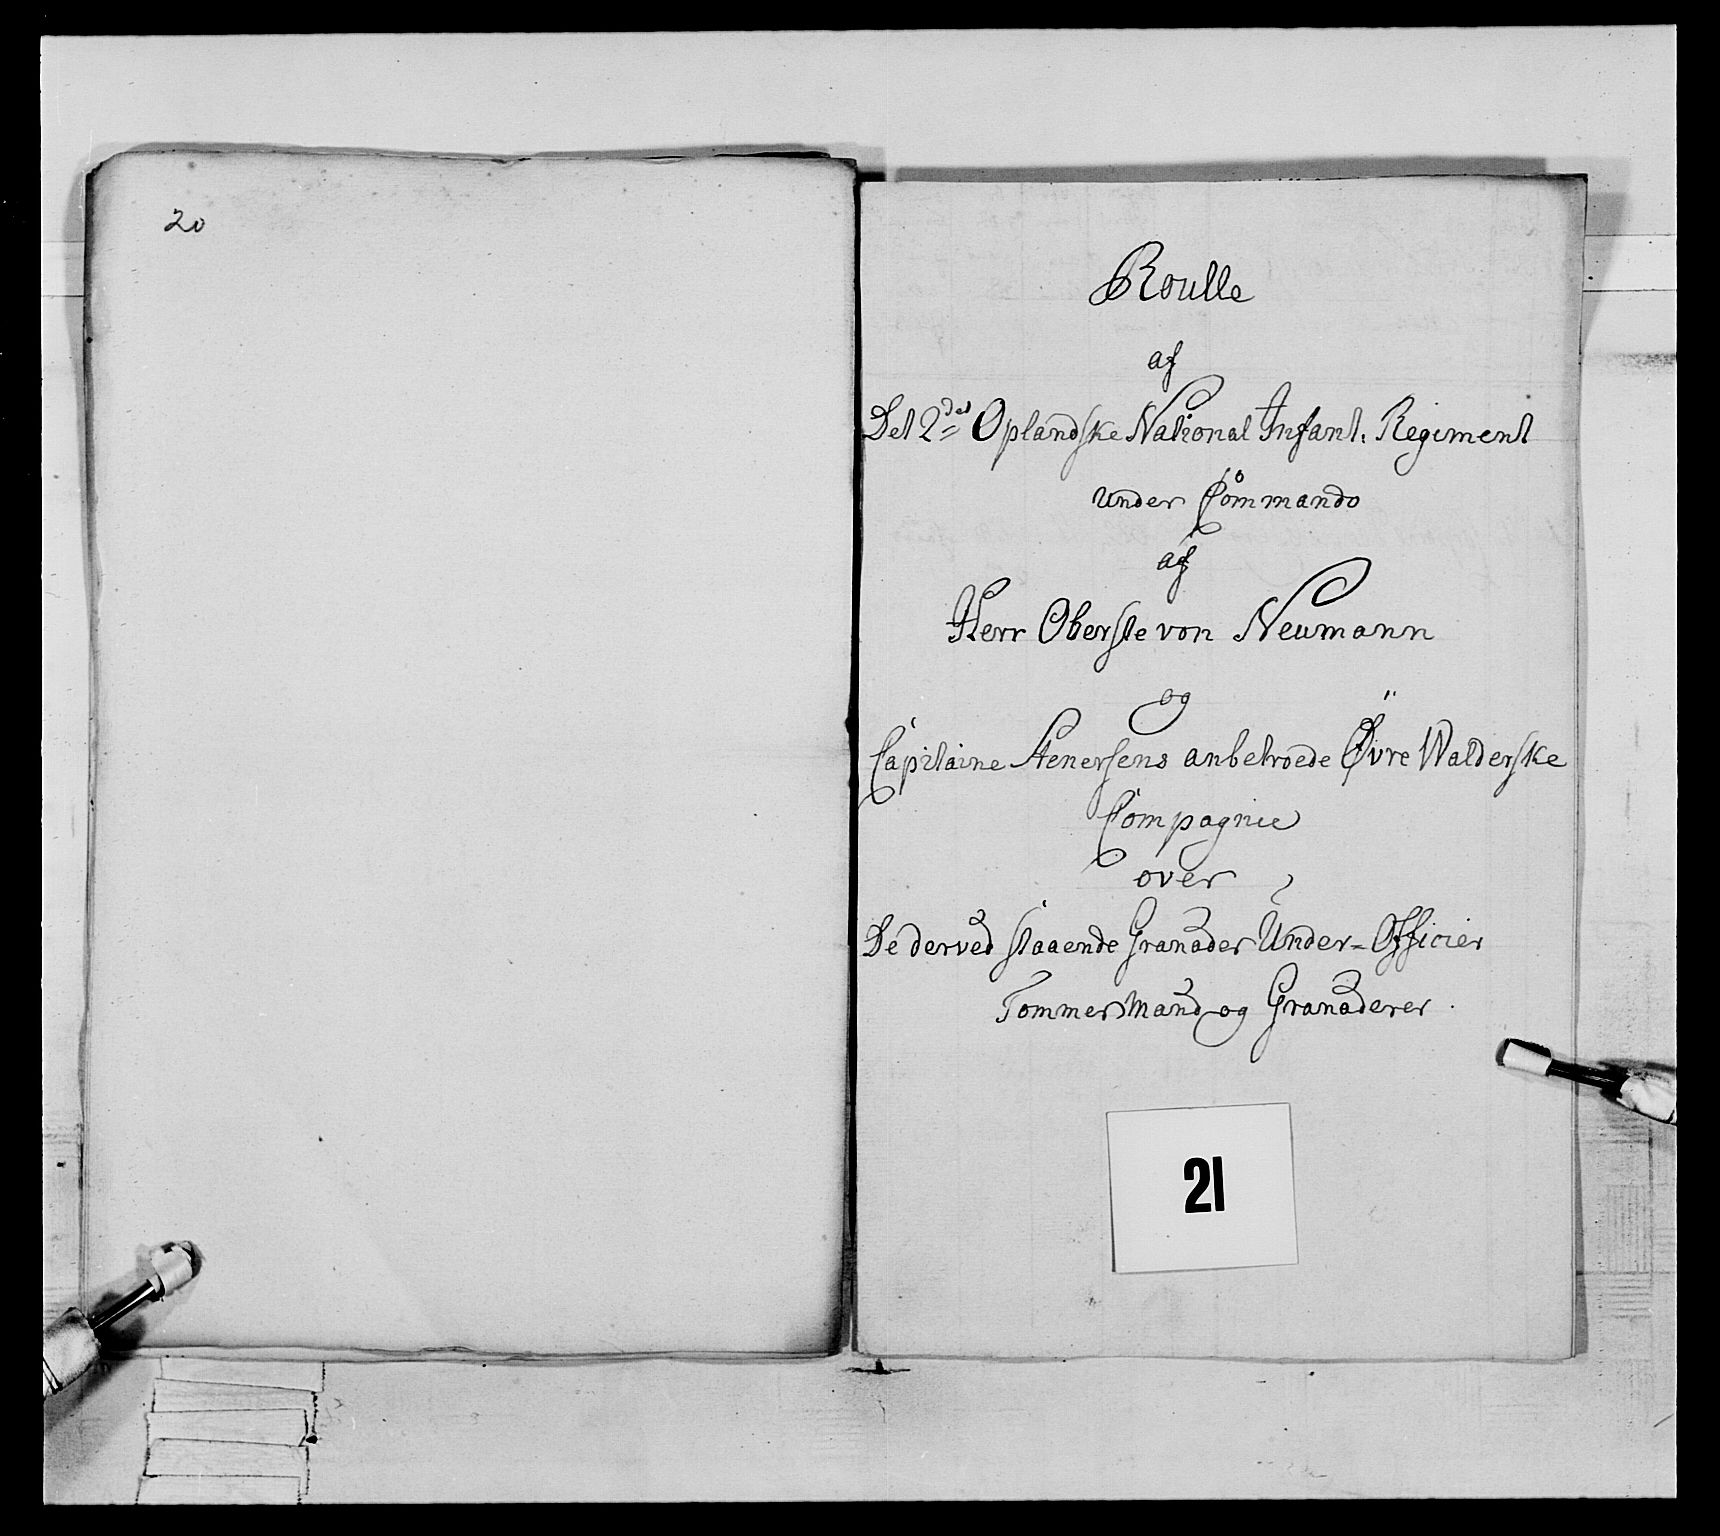 20
Roulle
af
Det 2det Oplandske National Infant: Regiment
under Commando
af
Herr Oberste von Neumann
og
Capitaine Stenersens anbetroede Øvre Walderske
Compagnie
over
De derved staaende Granader Under=Officier
Tommermand og Granaderer.
21